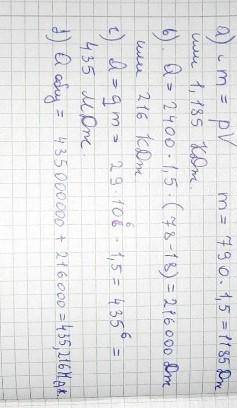 a) m = ρV   m = 790·1,5 = 1185 Дж
или 1,185 КДж.
b) Q = 2400·1,5·(78-18) = 216000 Дж
или 216 КДж
c) Q = qm = 29·10⁶·1,5 = 435⁶ =
435 МДж.
d) Q общ = 435000000 + 216000 = 435,216 МДж.